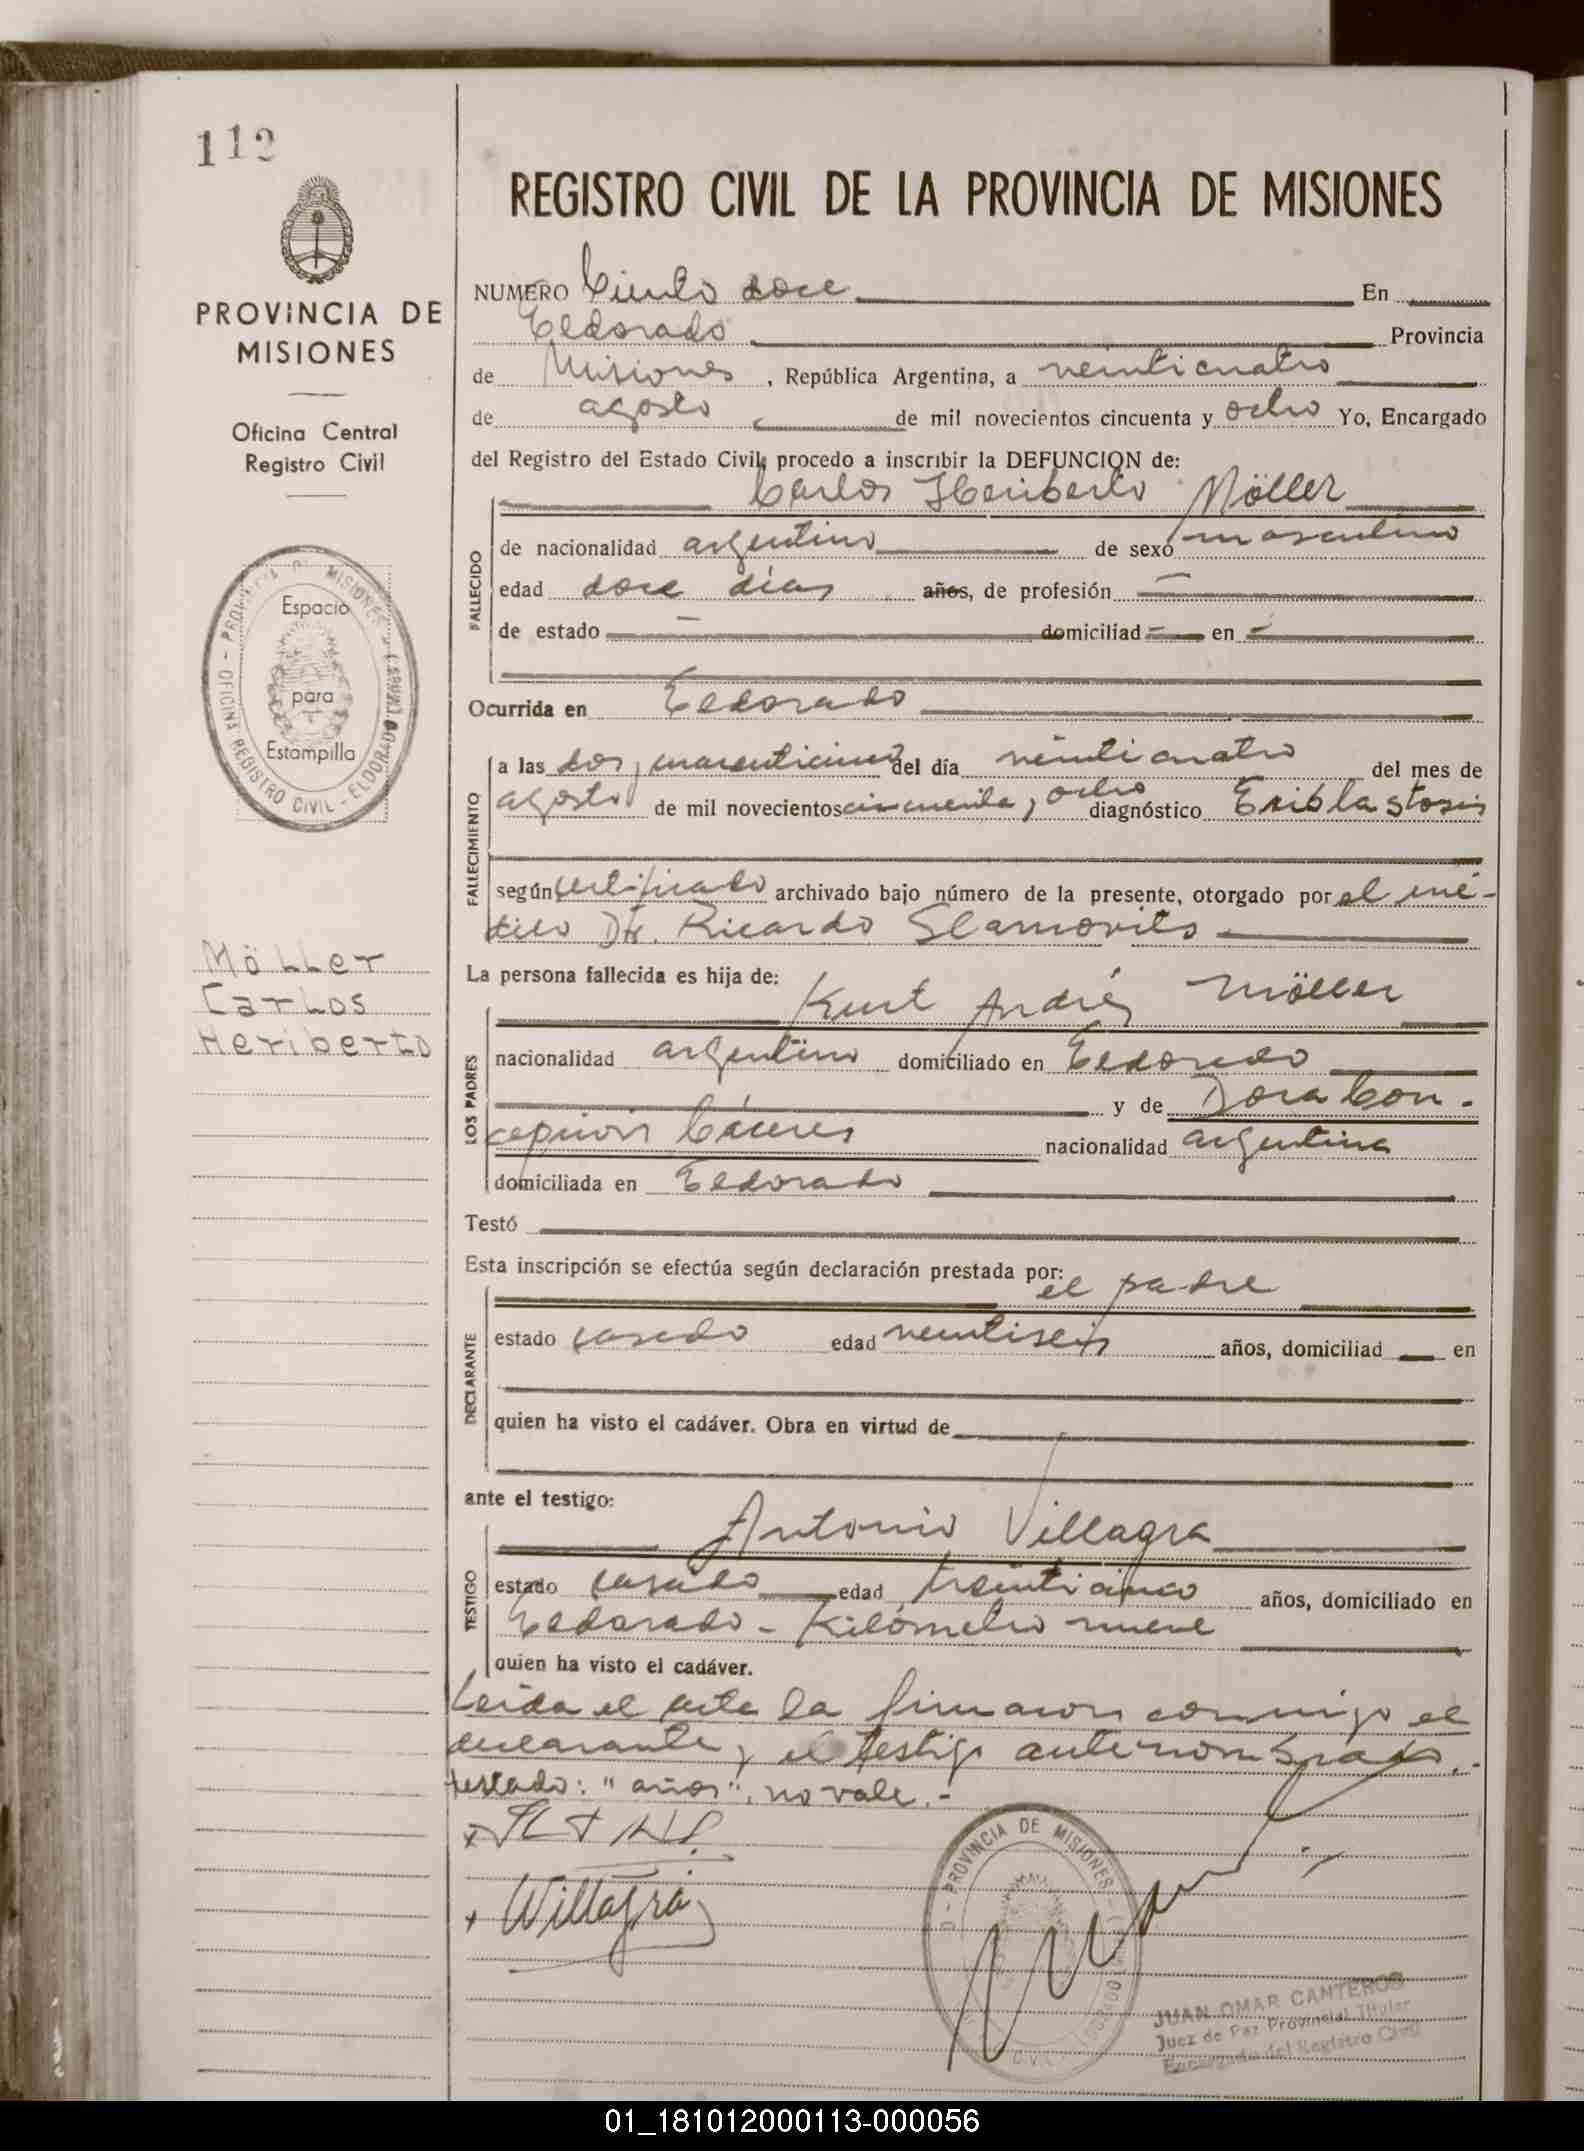 112
PROVINCIA DE
MISIONES
Oficina Central
Registro Civil
Espacio
para
Estampilla
OFICINA REGISTRO CIVIL - ELDORADO
Möller
Carlos
Heriberto
REGISTRO CIVIL DE LA PROVINCIA DE MISIONES
NUMERO Ciento doce En
Eldorado Provincia
de Misiones, República Argentina, a veinticuatro
de agosto de mil novecientos cincuenta y ocho Yo, Encargado
del Registro del Estado Civil, procedo a inscribir la DEFUNCION de:
Carlos Heriberto Möller
FALLECIDO
de nacionalidad argentino de sexo masculino
edad doce días años, de profesión —
de estado — domiciliad — en —
Ocurrida en Eldorado
FALLECIMIENTO
a las dos y cuarenticinco del día veinticuatro del mes de
agosto de mil novecientos cincuenta y ocho diagnóstico Eriblastosis
según certificado archivado bajo número de la presente, otorgado por el mé-
dico Dr. Ricardo
La persona fallecida es hija de:
Kurt Andrés Möller
LOS PADRES
nacionalidad argentino domiciliado en Eldorado
y de Dora Con-
cepción Cáceres nacionalidad argentina
domiciliada en Eldorado
Testó
Esta inscripción se efectúa según declaración prestada por:
el padre
DECLARANTE
estado casado edad veintiseis años, domiciliad — en
quien ha visto el cadáver. Obra en virtud de
ante el testigo:
Antonio Villagra
TESTIGO
estado casado edad treinticinco años, domiciliado en
Eldorado - Kilómetro nueve
quien ha visto el cadáver.
Leida el acta la firmaron conmigo el
declarante y el testigo antenombrado.-
testado: "años". no vale.-
Villagra
PROVINCIA DE MISIONES
JUAN OMAR CANTEROS
Juez de Paz Provincial Titular
Encargado del Registro Civil
01_181012000113-000056